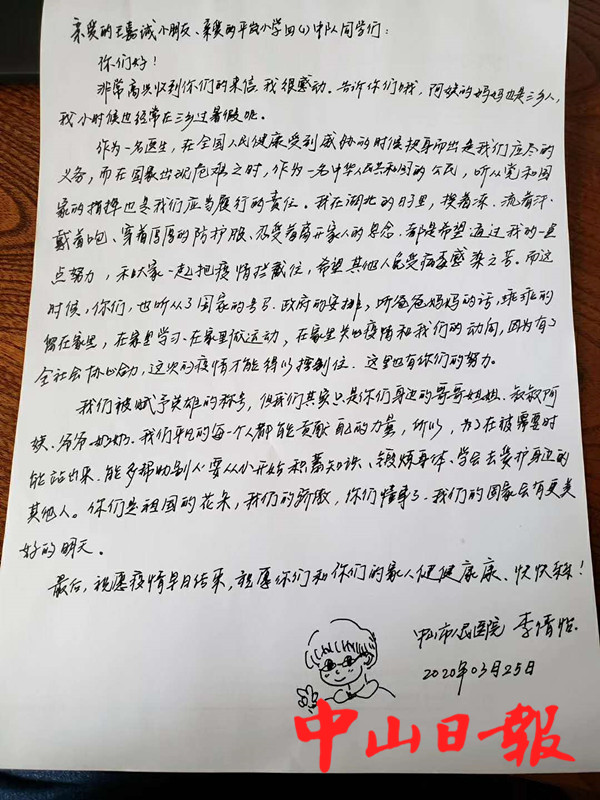 亲爱的王嘉诚小朋友、亲爱的平岚小学四(1)中队同学们：
你们好！
非常高兴收到你们的来信，我很感动。告诉你们哦，阿姨的妈妈也是三乡人，
我小时候也经常在三乡过暑假呢。
作为一名医生，在全国人民健康受到威胁的时候挺身而出是我们应尽的
义务，而在国家出现危难之时，作为一名中华人民共和国的公民，听从党和国
家的指挥也是我们应当履行的责任。我在湖北的日子里，接着流汗
戴着口罩、穿着厚厚的防护服、忍受着离开家人的思念，都是希望通过我的一点
点努力，和大家一起把疫情拦截住，希望其他人免受病毒感染之苦。而这
时候，你们，也听从了国家的号召、政府的安排，听爸爸妈妈的话，乖乖的
留在家里，在家里学习、在家里做运动，在家里关心疫情和我们的动向，因为有了
全社会协心合力，这次的疫情才能得以控制住。这里也有你们的努力。
我们被赋予英雄的称号，但我们其实只是你们身边的哥哥姐姐、叔叔阿
姨、爷爷奶奶。我们平凡的每一个人都能贡献自己的力量，所以，为了在被需要时
能站出来，能多帮助别人，要从小开始积蓄知识、锻炼身体、学会去爱护身边的
其他人。你们是祖国的花朵，我们的骄傲，你们懂事了，我们的国家会有更美
好的明天。
最后，祝愿疫情早日结束，祝愿你们和你们的家人健健康康、快快乐乐！
中山市人民医院 李倩怡
2020年03月25日
中山日報